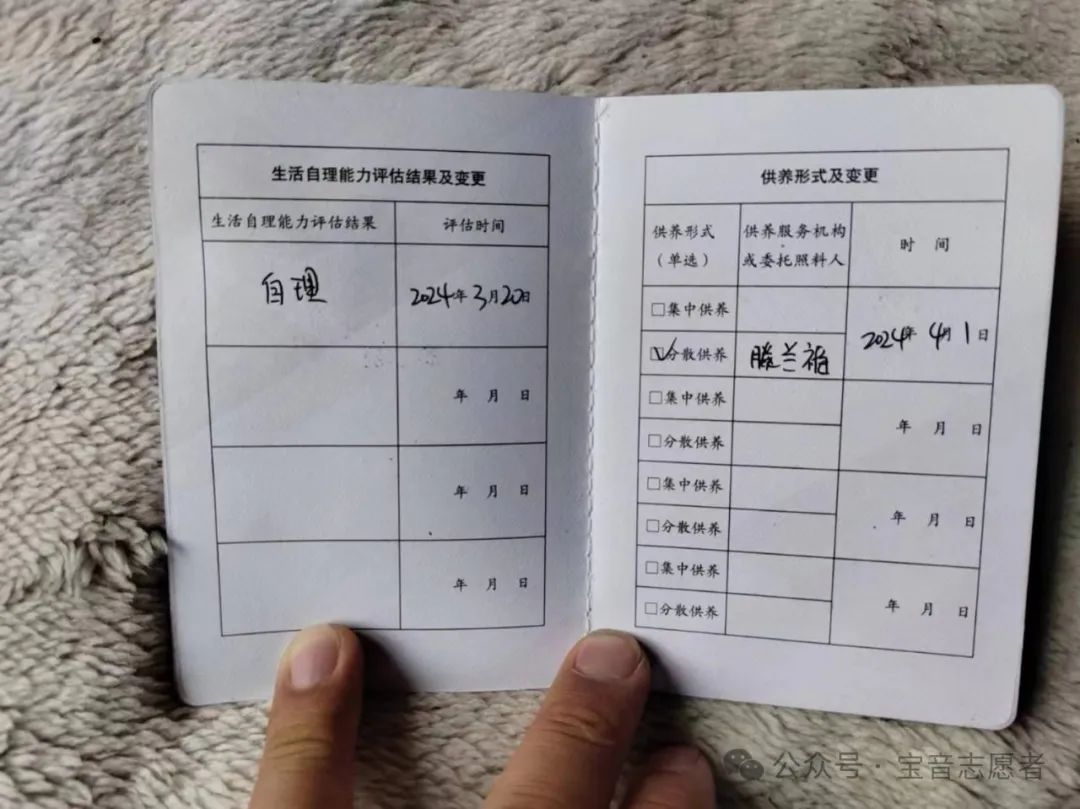 生活自理能力评估结果及变更
生活自理能力评估结果 评估时间
自理 2024年3月20日
年 月 日
年 月 日
年 月 日
供养形式及变更
供养形式（单选） 供养服务机构或委托照料人 时 间
□集中供养
☑分散供养 滕兰祖 2024年4月1日
□集中供养
□分散供养 年 月 日
□集中供养
□分散供养 年 月 日
□集中供养
□分散供养 年 月 日
公众号·宝音志愿者